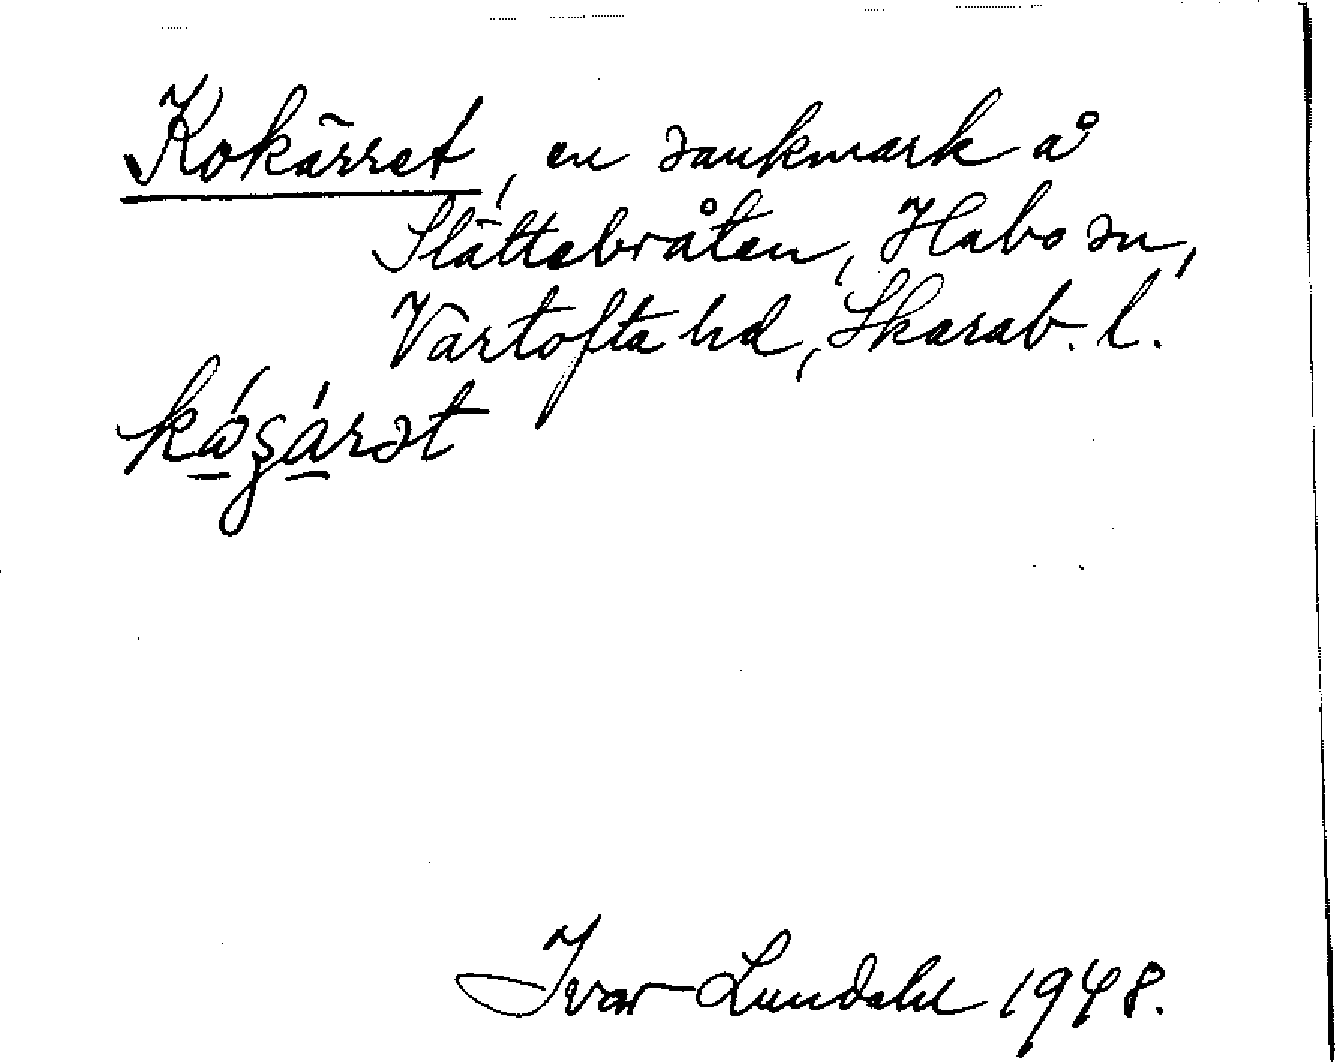 Kokärret, en sankmark å
Slättebråten, Habo sn,
Vartofta hd, Skarab. l.
Ivar Lundahl 1948.